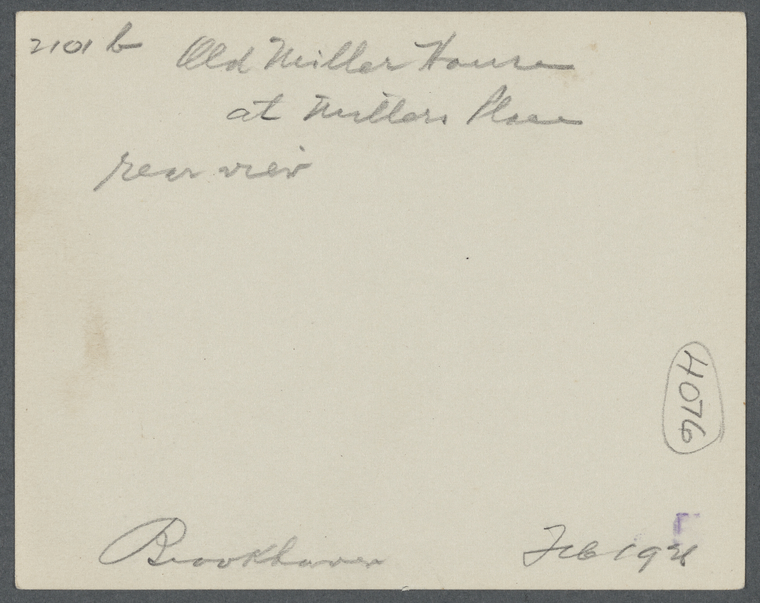 2101 b Old Miller House
at Millers Place
rear view
4076
Brookhaven Feb 192